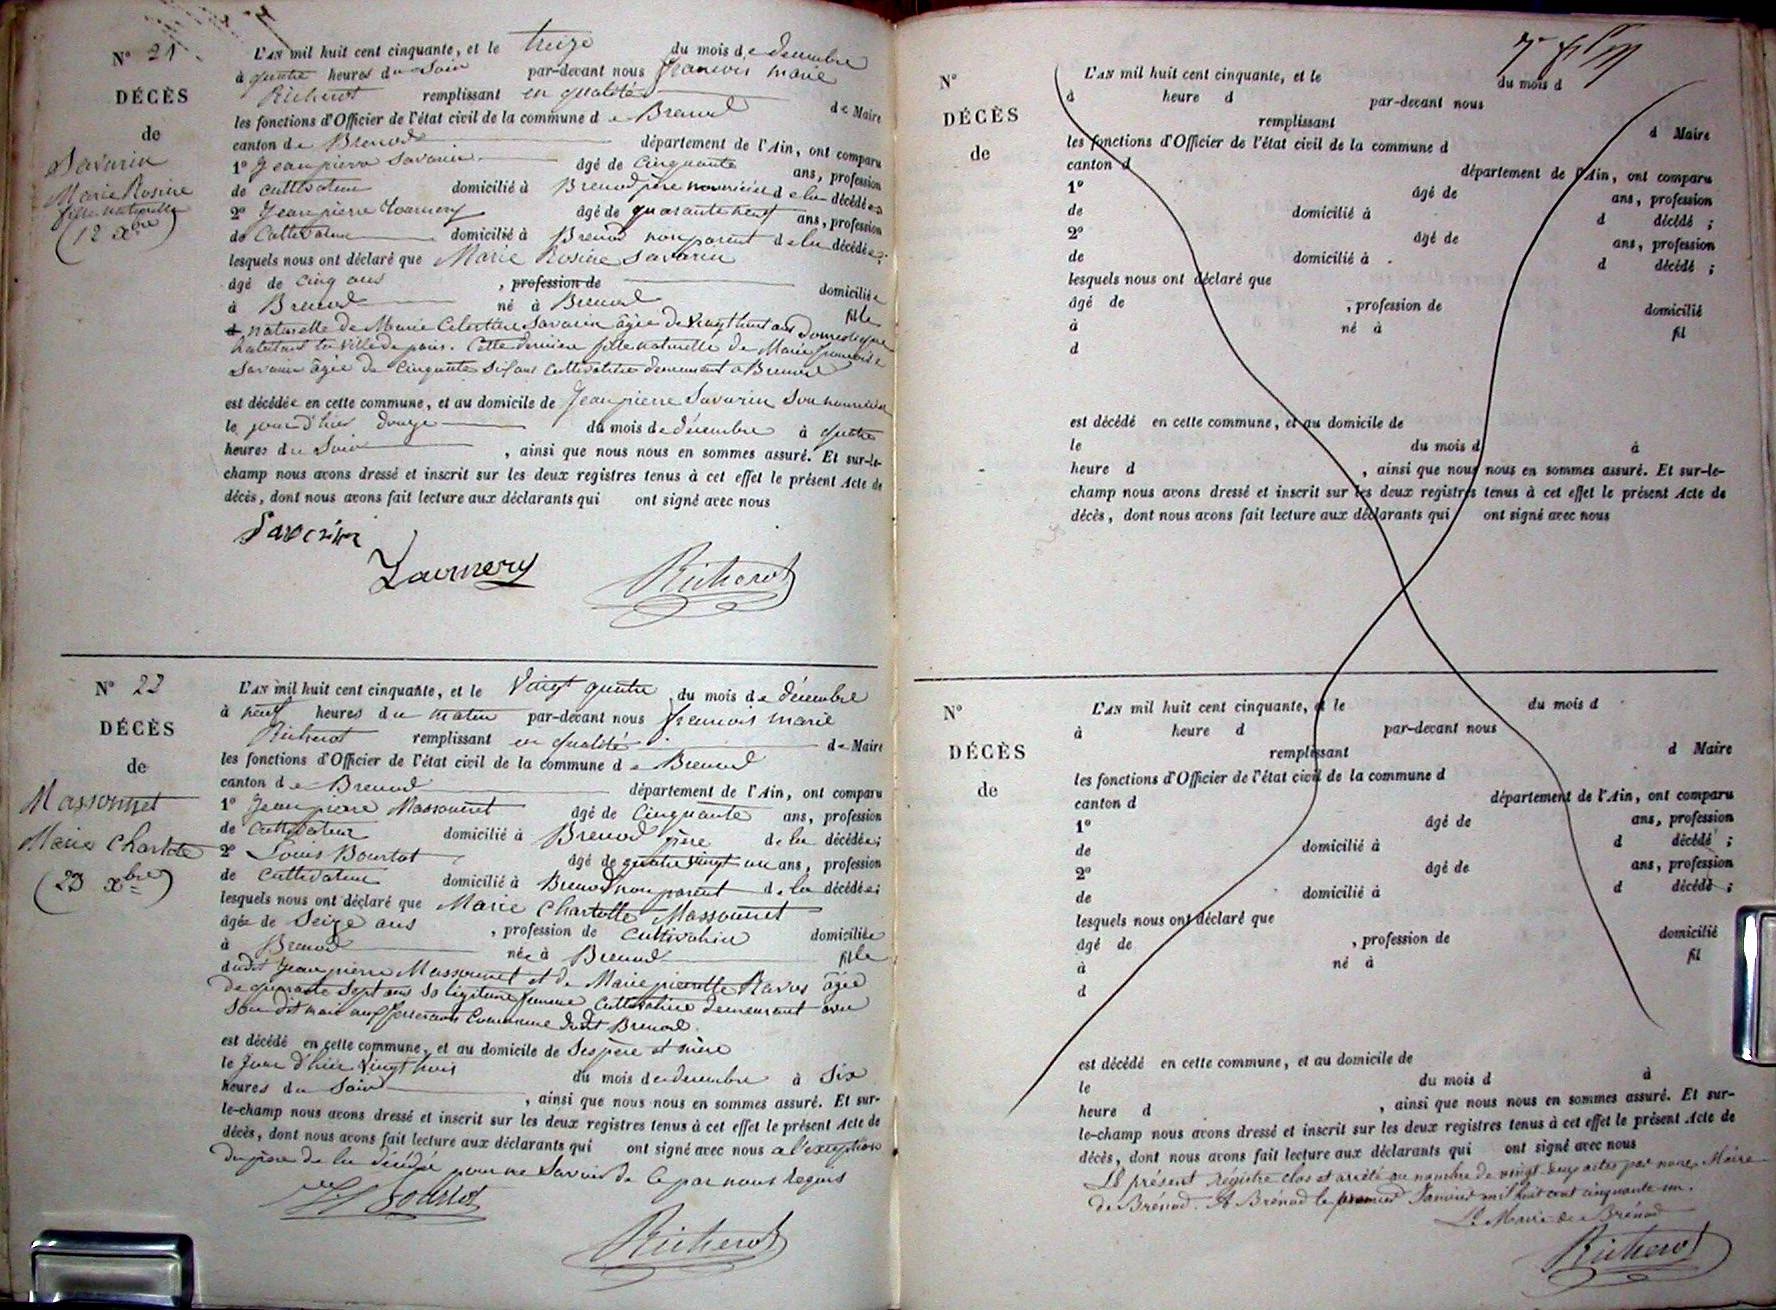 N° 21
DÉCÈS
de
Savarin
Marie Rosine
fille naturelle
(12 Xbre)
L'AN mil huit cent cinquante, et le treize du mois de décembre
à quatre heures du soir par-devant nous françois marie
Richerot remplissant en qualité de Maire
les fonctions d'Officier de l'état civil de la commune de Brenod
canton de Brenod département de l'Ain, ont comparu
1° Jean pierre Savarin âgé de cinquante ans, profession
de cultivateur domicilié à Brenod père nourricier de la décédée
2° Jean pierre Tournery âgé de quarante neuf ans, profession
de cultivateur domicilié à Brenod non parent de la décédée;
lesquels nous ont déclaré que Marie Rosine Savarin
âgé de cinq ans , profession de domiciliée
à Brenod né à Brenod fille
naturelle de Marie Celestine Savarin âgée de vingt huit ans Domestique
habitant la ville de paris. Cette dernière fille naturelle de Marie françoise
Savarin âgée de cinquante six ans cultivatrice demeurant à Brenod
est décédée en cette commune, et au domicile de Jean pierre Savarin son nourricier
le jour d'hier douze du mois de décembre à quatre
heures du soir , ainsi que nous nous en sommes assuré. Et sur-le-
champ nous avons dressé et inscrit sur les deux registres tenus à cet effet le présent Acte de
décès, dont nous avons fait lecture aux déclarants qui ont signé avec nous
Savarin
Tournery
Richerot
N° 22
DÉCÈS
de
Massonnet
Marie Charlotte
(23 Xbre)
L'AN mil huit cent cinquante, et le vingt quatre du mois de décembre
à neuf heures du matin par-devant nous françois marie
Richerot remplissant en qualité de Maire
les fonctions d'Officier de l'état civil de la commune de Brenod
canton de Brenod département de l'Ain, ont comparu
1° Jean pierre Massonnet âgé de cinquante ans, profession
de cultivateur domicilié à Brenod père de la décédée;
2° Louis Bourlot âgé de quatre vingt un ans, profession
de cultivateur domicilié à Brenod non parent de la décédée;
lesquels nous ont déclaré que Marie Charlotte Massonnet
âgée de seize ans , profession de cultivatrice domiciliée
à Brenod née à Brenod fille
dudit Jean pierre Massonnet et de Marie pierrette Ravet âgée
de quarante sept ans sa légitime femme cultivatrice demeurant avec
son dit mari commune dudit Brenod.
est décédé en cette commune, et au domicile de ses père et mère
le jour d'hier vingt trois du mois de décembre à six
heures du soir , ainsi que nous nous en sommes assuré. Et sur-
le-champ nous avons dressé et inscrit sur les deux registres tenus à cet effet le présent Acte de
décès, dont nous avons fait lecture aux déclarants qui ont signé avec nous à l'exception
du père de la décédée pour ne savoir de ce par nous requis
Bourlot
Richerot
N°
DÉCÈS
de
L'AN mil huit cent cinquante, et le du mois d
à heure d par-devant nous
remplissant d Maire
les fonctions d'Officier de l'état civil de la commune d
canton d département de l'Ain, ont comparu
1° âgé de ans, profession
de domicilié à d décédé ;
2° âgé de ans, profession
de domicilié à d décédé ;
lesquels nous ont déclaré que
âgé de , profession de domicilié
à né à fil
d
est décédé en cette commune, et au domicile de
le du mois d à
heure d , ainsi que nous nous en sommes assuré. Et sur-le-
champ nous avons dressé et inscrit sur les deux registres tenus à cet effet le présent Acte de
décès, dont nous avons fait lecture aux déclarants qui ont signé avec nous
N°
DÉCÈS
de
L'AN mil huit cent cinquante, et le du mois d
à heure d par-devant nous
remplissant d Maire
les fonctions d'Officier de l'état civil de la commune d
canton d département de l'Ain, ont comparu
1° âgé de ans, profession
de domicilié à d décédé ;
2° âgé de ans, profession
de domicilié à d décédé ;
lesquels nous ont déclaré que
âgé de , profession de domicilié
à né à fil
d
est décédé en cette commune, et au domicile de
le du mois d à
heure d , ainsi que nous nous en sommes assuré. Et sur-
le-champ nous avons dressé et inscrit sur les deux registres tenus à cet effet le présent Acte de
décès, dont nous avons fait lecture aux déclarants qui ont signé avec nous
Le présent régistre clos et arrêté au nombre de vingt-deux actes par nous Maire
de Brénod. A Brénod le premier Janvier mil huit cent cinquante-un.
Le Maire de Brénod
Richerot